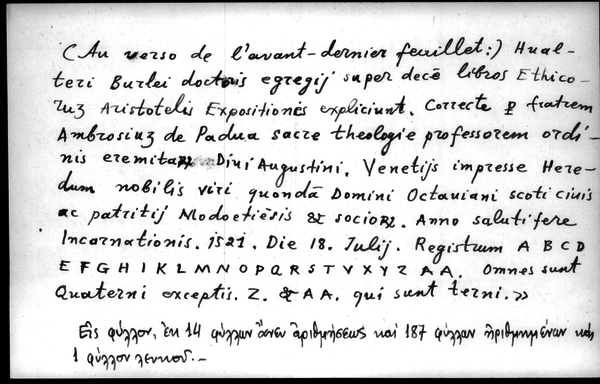 (Au verso de l'avant-dernier feuillet:) Hual-
teri Burlei doctoris egregij super decē libros Ethico-
ruʒ Aristotelis Expositiones expliciunt. Correcte ꝑ fratrem
Ambrosiuʒ de Padua sacre theologie professorem ordi-
nis eremitaꝝ Divi Augustini. Venetijs impresse Here-
dum nobilis viri quondā Domini Octaviani scoti civis
ac patritij Modoetiēsis & socioꝝ. Anno salutifere
Incarnationis. 1521. Die 18. Julij. Registrum A B C D
E F G H I K L M N O P Q R S T V X Y Z A A. Omnes sunt
Quaterni exceptis. Z. & A A. qui sunt terni.»
Εἰς φύλλον, ἐκ 14 φύλλων ἄνευ ἀριθμήσεως καὶ 187 φύλλων ἠριθμημένων καὶ
1 φύλλου λευκοῦ.—